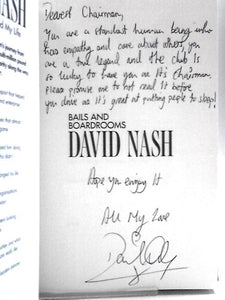 Dearest Chairman,
You are a standout human being who
has empathy and care about others, you
are a true legend and the club is
so lucky to have you as it's Chairman.
Please promise me to not read it before
you drive as it's great at putting people to sleep!
BAILS AND
BOARDROOMS
DAVID NASH
Hope you enjoy it
All My Love
NASH
My Life